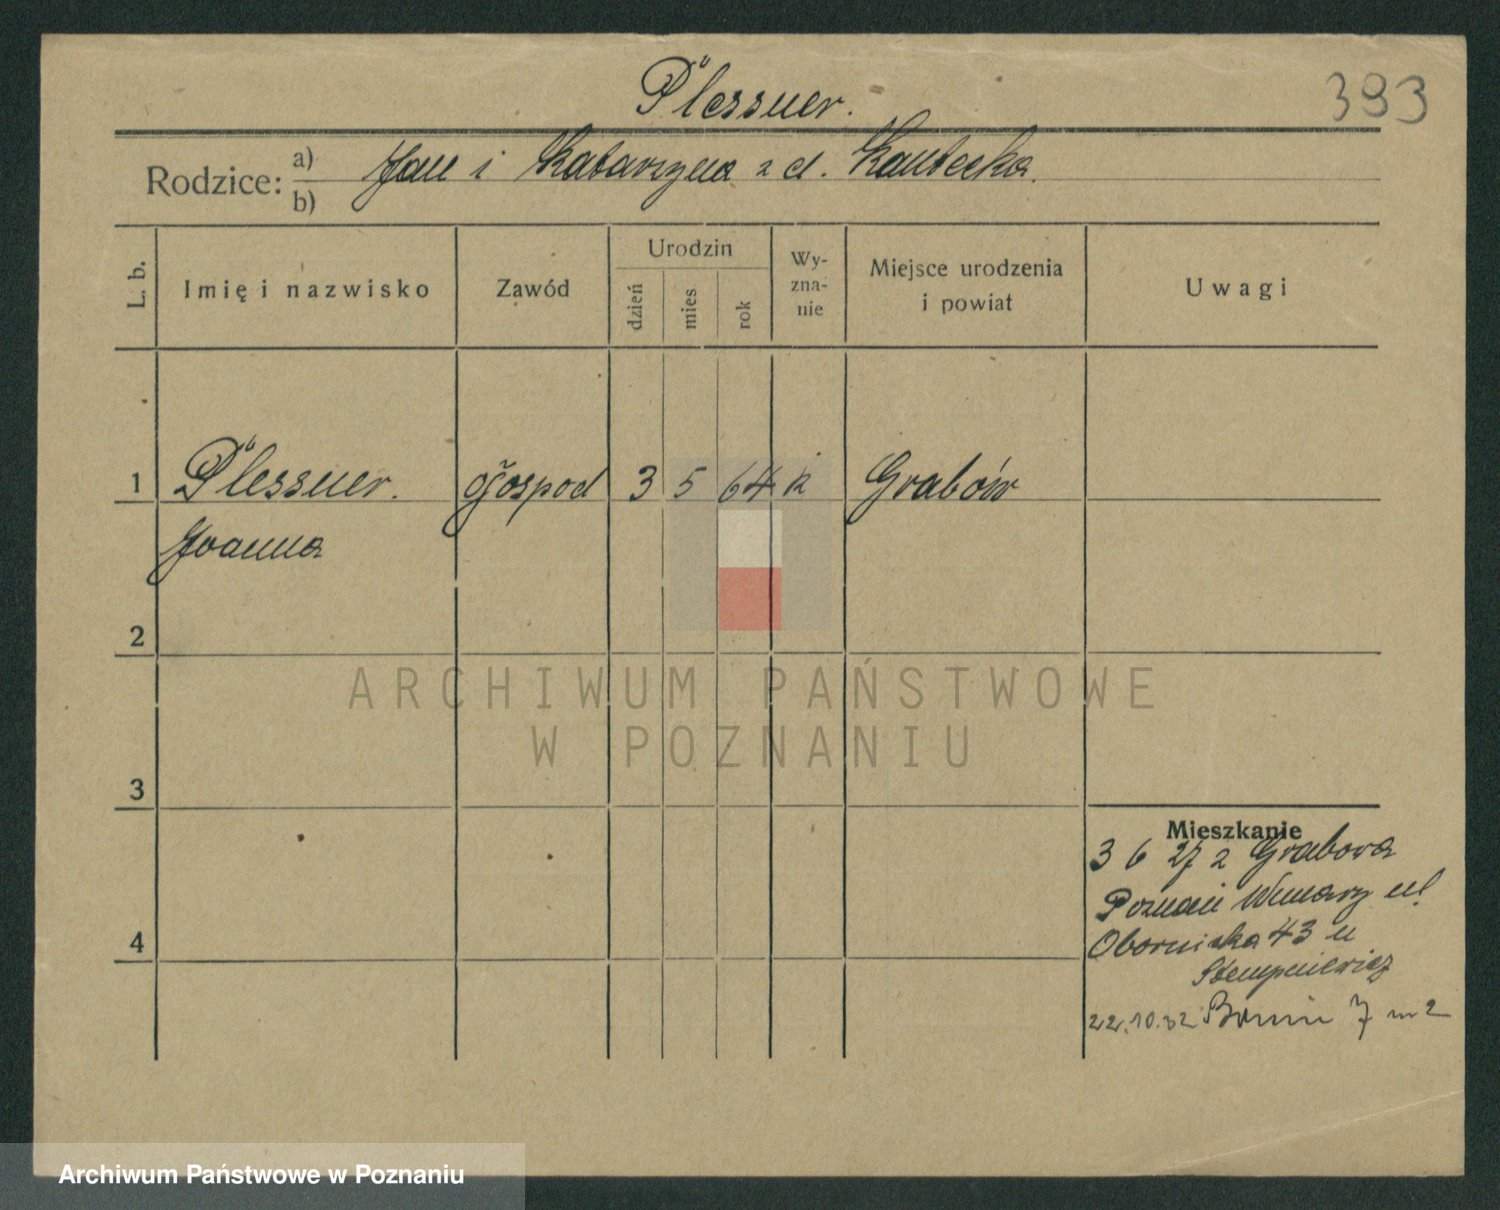 Plessner.
393
Rodzice: a) Jan i Katarzyna z d. Kantecka.
b)
L. b. Imię i nazwisko Zawód Urodzin dzień mies rok Wyznanie Miejsce urodzenia i powiat Uwagi
1 Plessner. gospod 3 5 64 k Grabów
Joanna
2
ARCHIWUM PAŃSTWOWE
W POZNANIU
3
Mieszkanie
3 6 27 z Grabowa
Poznań Winiary ul
Obornicka 43 u
Stempniewicz
4
22.10.32 7 m 2
Archiwum Państwowe w Poznaniu